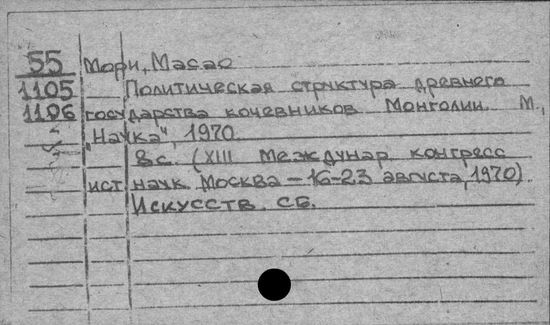 55 Мори, Масао
1105 Политическая структура древнего
1196 государства кочевников Монголии. М.,
"Наука", 1970.
8с. (XIII Междунар. конгресс
ист. наук. Москва - 16-23 августа, 1970)
Искусств. сб.